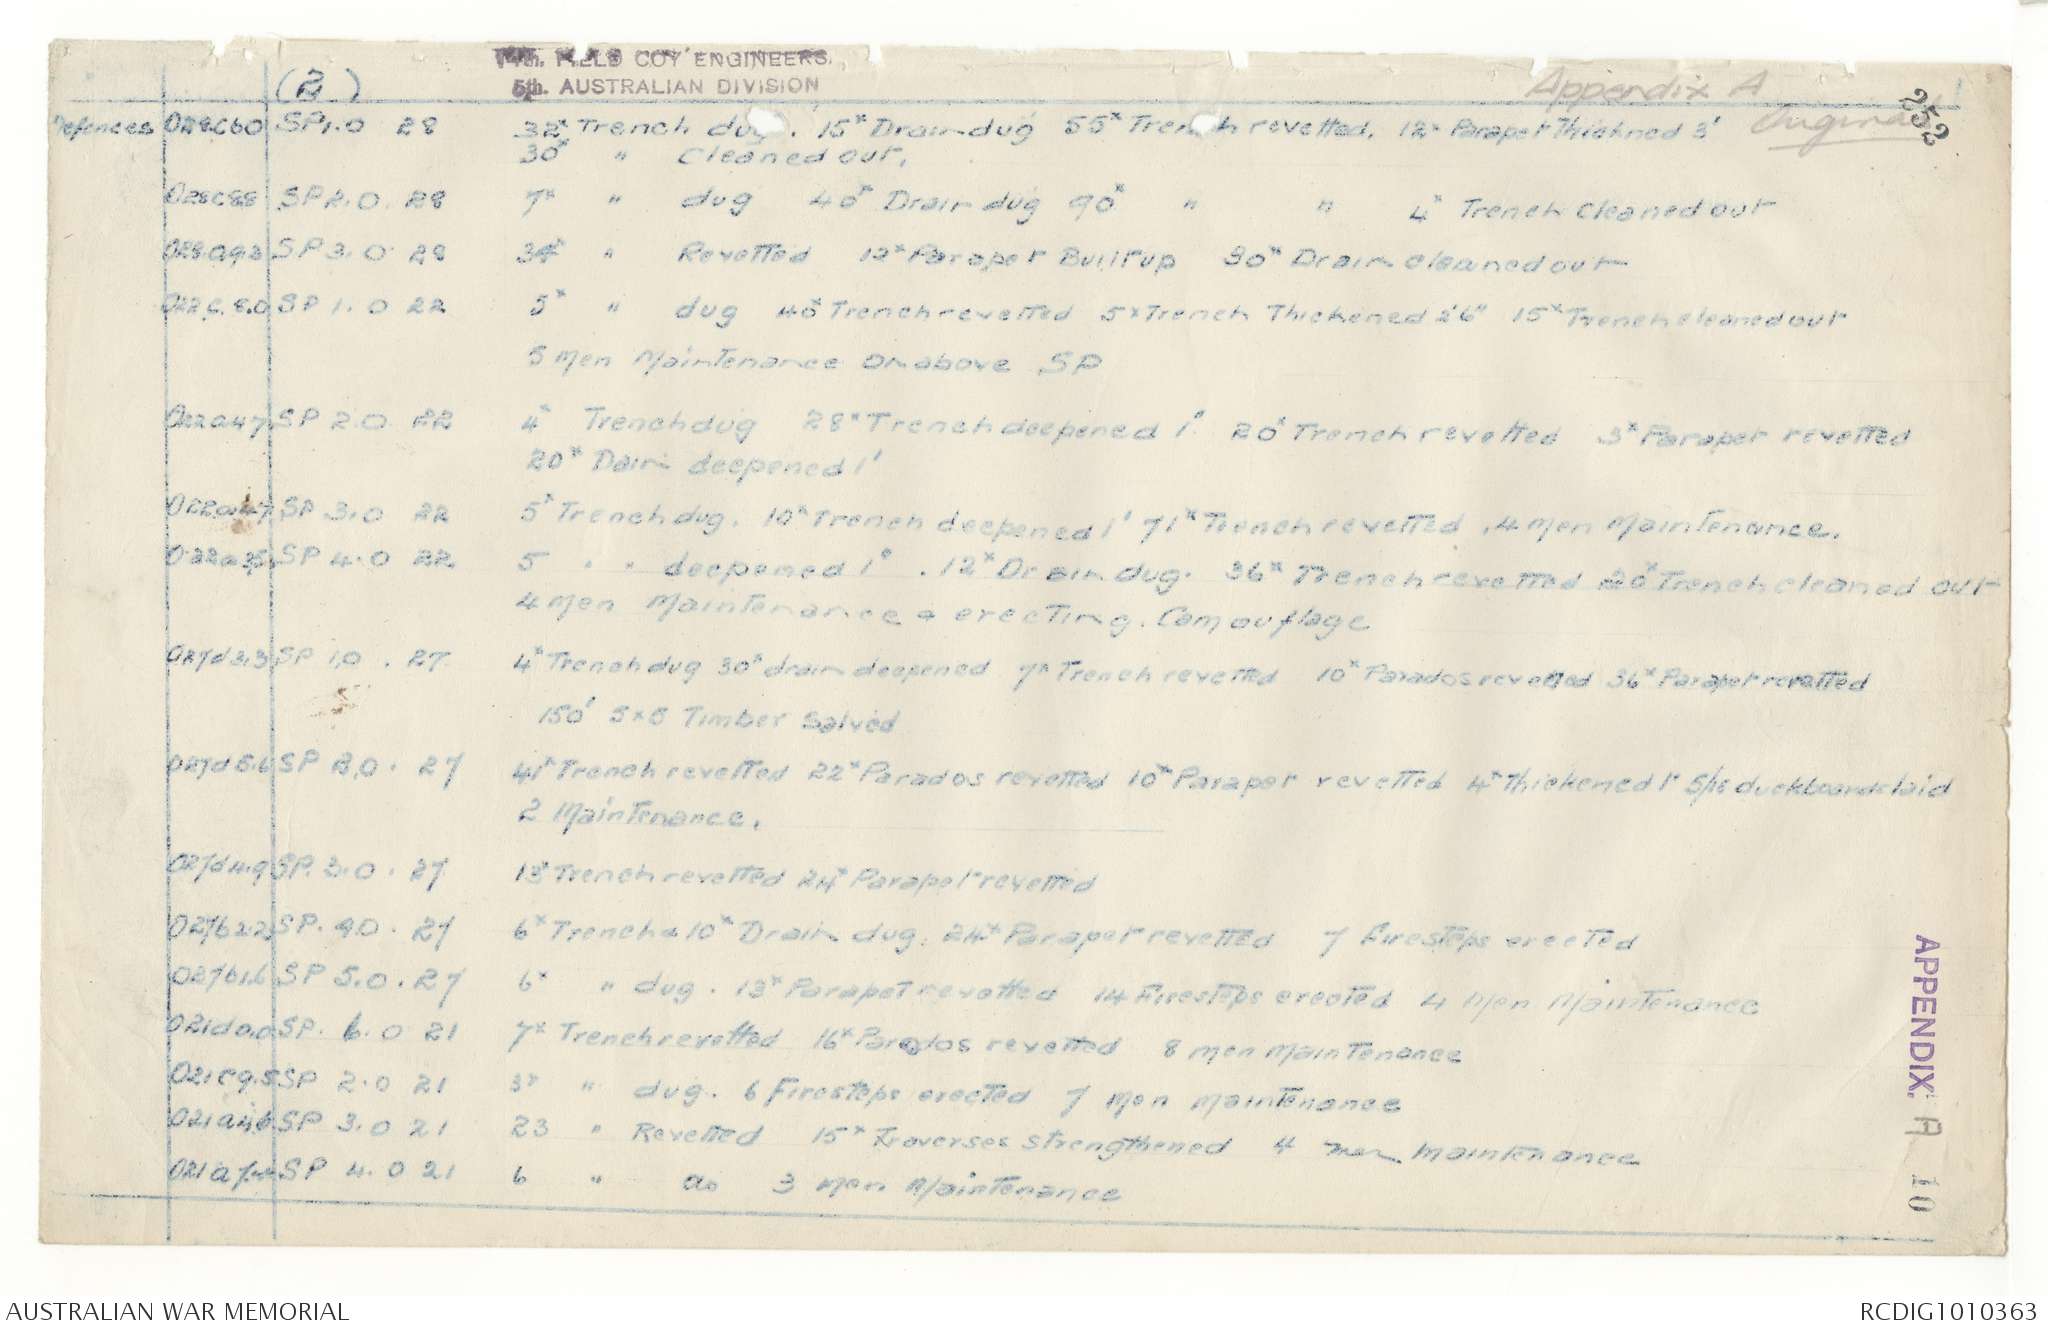 14th. FIELD COY ENGINEERS.
5th. AUSTRALIAN DIVISION
(2)
Appendix A
252
Defences O28c60 SP1.0 28 32x Trench dug. 15x Drain dug 55x Trench revetted. 12x Parapet Thickned 3'
30x " Cleaned out.
O28c88 SP2.0. 28 7x " dug 40x Drain dug 90x " " 4x Trench cleaned out
O28.a93 SP 3.0 28 34x " Revetted 12x Parapet Built up 30x Drain cleaned out
O22c.8.0 SP 1.0 22 5x " dug 40x Trench revetted 5x Trench Thickened 2'6" 15x Trench cleaned out
5 Men Maintenance on above SP
O22a47 SP 2.0 22 4x Trench dug 28x Trench deepened 1' 20x Trench revetted 3x Parapet revetted
20x Dain deepened 1'
O22a47 SP 3.0 22 5x Trench dug. 10x Trench deepened 1' 71x Trench revetted. 4 Men Maintenance.
SP 4.0 22 5 " " deepened 1' . 12x Drain dug. 36x Trench revetted 20x Trench cleaned out
4 Men Maintenance & erecting. Camouflage
O27d3.3 SP 1.0 . 27 4x Trench dug 30x drain deepened 7x Trench revetted 10x Parados revetted 36x Parapet revetted
150' 5x5 Timber Salved
O27d5.6 SP 2.0. 27 41x Trench revetted 22x Parados revetted 10x Parapet revetted 4x Thickened 1' duckboards laid
2 Maintenance.
O27d4.9 SP. 3.0. 27 13x Trench revetted 24x Parapet revetted
O27b2.2 SP. 4.0. 27 6x Trench & 10x Drain dug. 24x Parapet revetted 7 Firesteps erected
O27b1.6 SP 5.0. 27 6x " dug. 13x Parapet revetted 14 Firesteps erected 4 Men Maintenance
O21d0.0 SP. 6.0 21 7x Trench revetted 16x Parados revetted 8 men Maintenance
O21c9.5 SP 2.0 21 3x " dug. 6 Firesteps erected 7 Men Maintenance
O21a4.6 SP 3.0 21 23 " Revetted 15x Traverses strengthened 4 men Maintenance
SP 4.0 21 6 " do 3 Men Maintenance
APPENDIX. A
10
AUSTRALIAN WAR MEMORIAL
RCDIG1010363